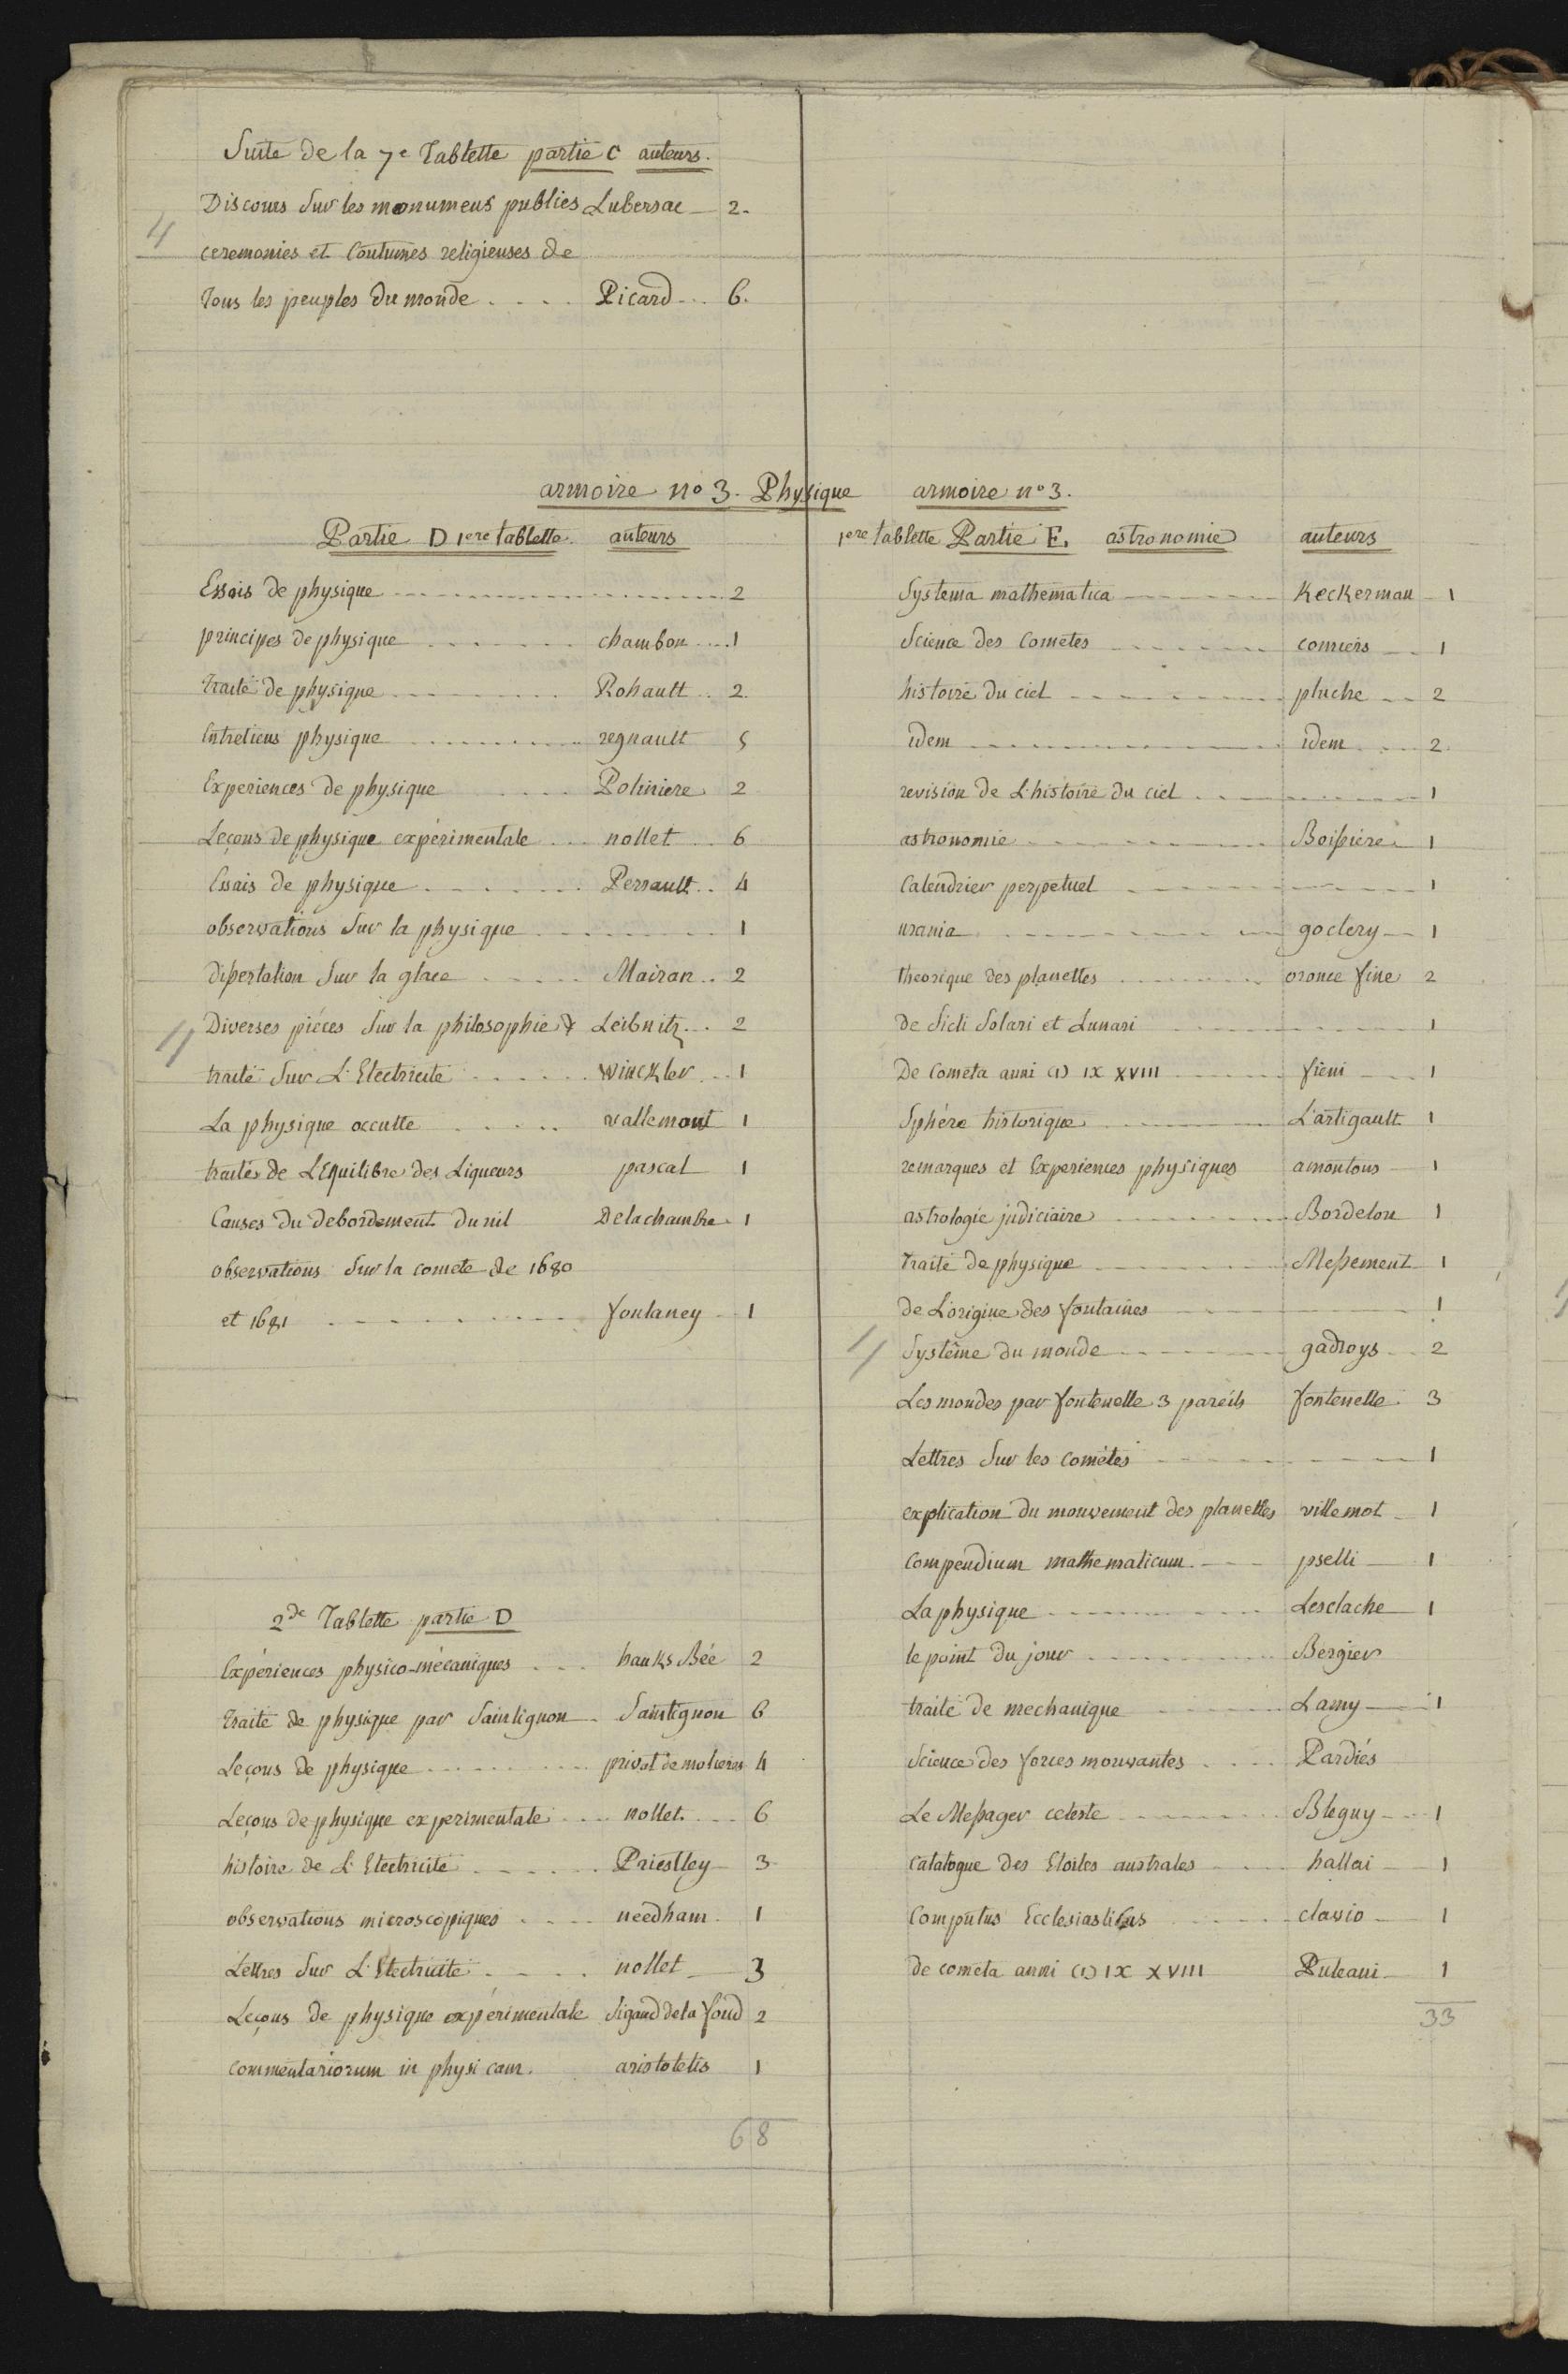 Suite de la 7e Tablette partie C auteurs.
Discours Sur les monumens publics Lubersac 2.
4
ceremonies et Coutumes religieuses de
Tous les peuples du monde Picard 6.
armoire no 3. Physique
Partie D 1ere tablette. auteurs
Essais de physique 2
principes de physique chambon 1
Traité de physique Rohault 2.
Entretiens physique regnault 5
Experiences de physique Poliniere 2
Leçons de physique expérimentale nollet 6
Essais de physique Perrault 4
observations Sur la physique 1
dissertation Sur la glace Mairan 2
Diverses piéces Sur la philosophie & Leibnitz 2
4
traité Sur L'Electricité Winckler 1
La physique occulte vallemont 1
traités de L'Equilibre des Liqueurs pascal 1
Causes du debordement du nil Delachambre 1
observations Sur la comete de 1680
et 1681 fontaney 1
2de Tablette partie D
Expériences physico-mécaniques hauksBée 2
Traité de physique par Saintignon Saintignon 6
Leçons de physique privat de molieres 4
Leçons de physique experimentale nollet 6
histoire de L'Electricité Priestley 3
observations microscopiques needham 1
Lettres Sur L'Electricité nollet 3
Leçons de physique expérimentale Sigaud de la fond 2
commentariorum in physicam. aristotelis 1
68
armoire no 3.
1ere tablette Partie E. astronomie auteurs
Systema mathematica Keckerman 1
Science des Cometes comiers 1
histoire du ciel pluche 2
idem idem 2
revision de L'histoire du ciel 1
astronomie Boissiere 1
Calendrier perpetuel 1
urania goclery 1
theorique des planettes oronce fine 2
de Sicli Solari et Lunari 1
De Cometa anni (I) IX XVIII fieni 1
Sphére historique L'artigault 1
remarques et Experiences physiques amontons 1
astrologie judiciaire Bordelon 1
Traité de physique Messement 1
de L'origine des fontaines 1
4
Systême du monde gadroys 2
Les mondes par fontenelle 3 pareils fontenelle 3
Lettres Sur les cométes 1
explication du mouvement des planettes villemot 1
Compendium mathematicum pselli 1
La physique Lesclache 1
le point du jour Bergier
traité de mechanique Lamy 1
Science des forces mouvantes Pardiés
Le Messager celeste Blegny 1
Catalogue des Etoiles australes hallai 1
Computus Ecclesiasticus clavio 1
de cometa anni (I) IX XVIII Puteani 1
33